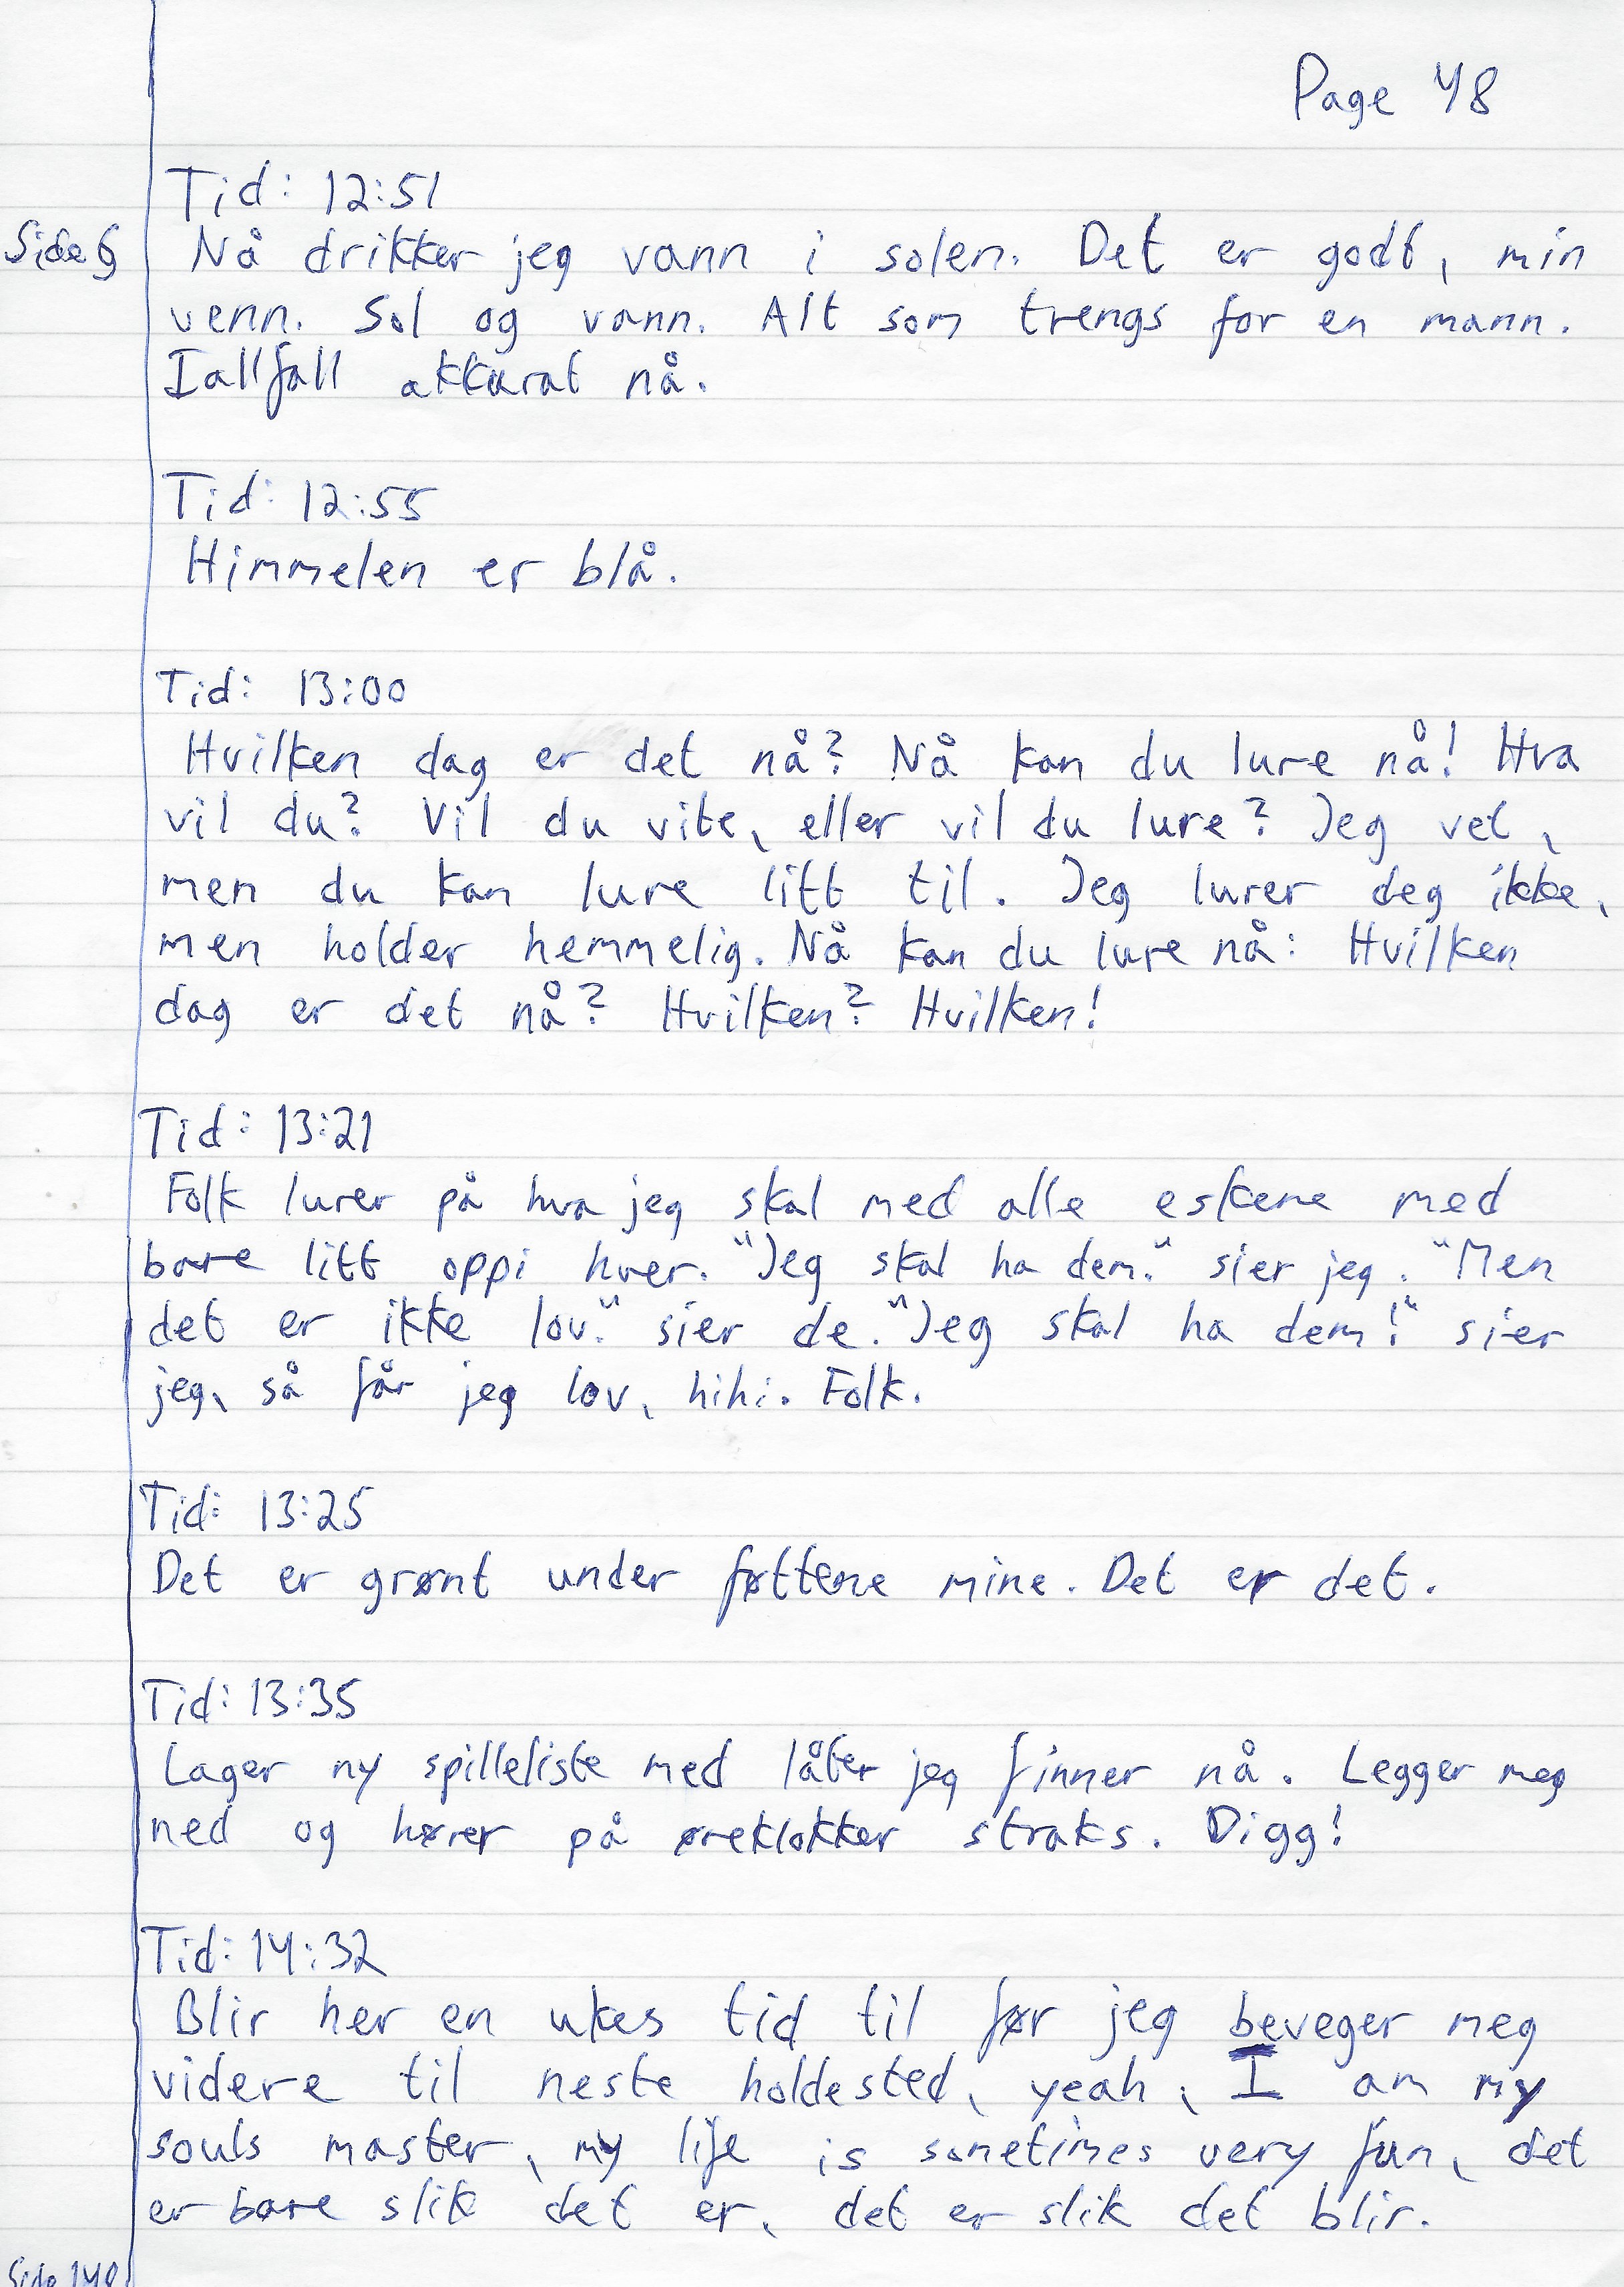 Page 48
Tid: 12:51
Side 6
Nå drikker jeg vann i solen. Det er godt, min
venn. Sol og vann. Alt som trengs for en mann.
Iallfall akkurat nå.
Tid: 12:55
Himmelen er blå.
Tid: 13:00
Hvilken dag er det nå? Nå kan du lure nå! Hva
vil du? Vil du vite, eller vil du lure? Jeg vet,
men du kan lure litt til. Jeg lurer deg ikke,
men holder hemmelig. Nå kan du lure nå: Hvilken
dag er det nå? Hvilken? Hvilken!
Tid: 13:21
Folk lurer på hva jeg skal med alle eskene med
bare litt oppi hver. "Jeg skal ha dem." sier jeg. "Men
det er ikke lov." sier de. "Jeg skal ha dem!" sier
jeg, så får jeg lov, hihi. Folk.
Tid: 13:25
Det er grønt under føttene mine. Det er det.
Tid: 13:35
Lager ny spilleliste med låter jeg finner nå. Legger meg
ned og hører på øreklokker straks. Digg!
Tid: 14:32
Blir her en ukes tid til før jeg beveger meg
videre til neste holdested, yeah, I am my
souls master, my life is sometimes very fun, det
er bare slik det er, det er slik det blir.
Side 148